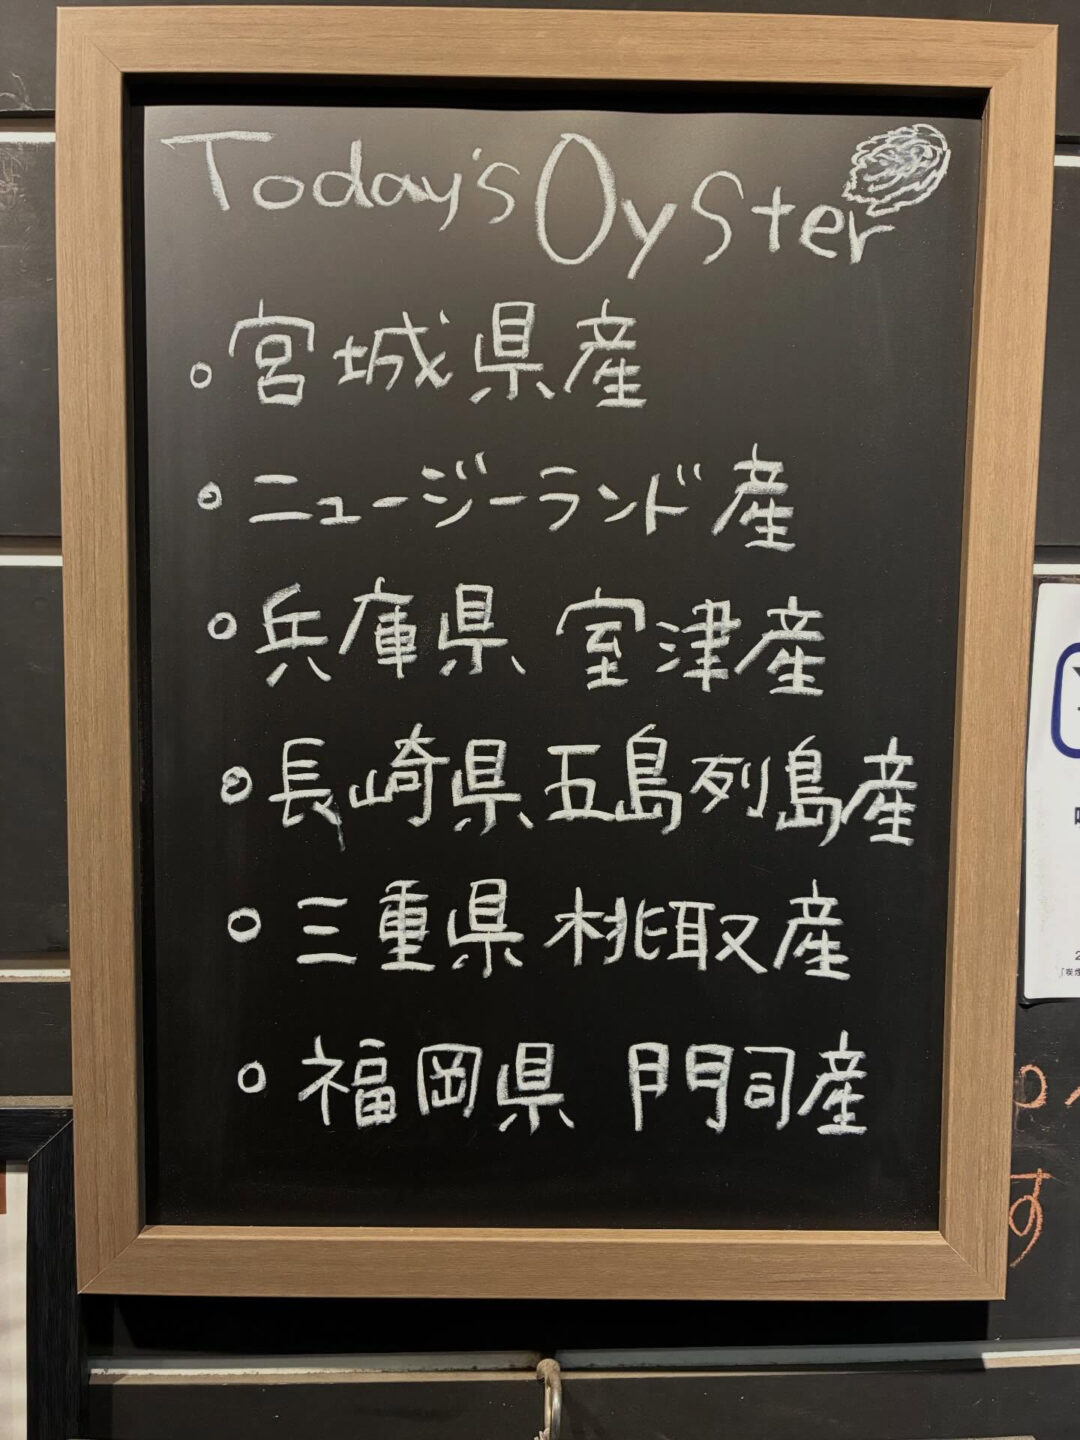 Today's Oyster
○宮城県産
○ニュージーランド産
○兵庫県 室津産
○長崎県五島列島産
○三重県 桃取産
○福岡県 門司産
す